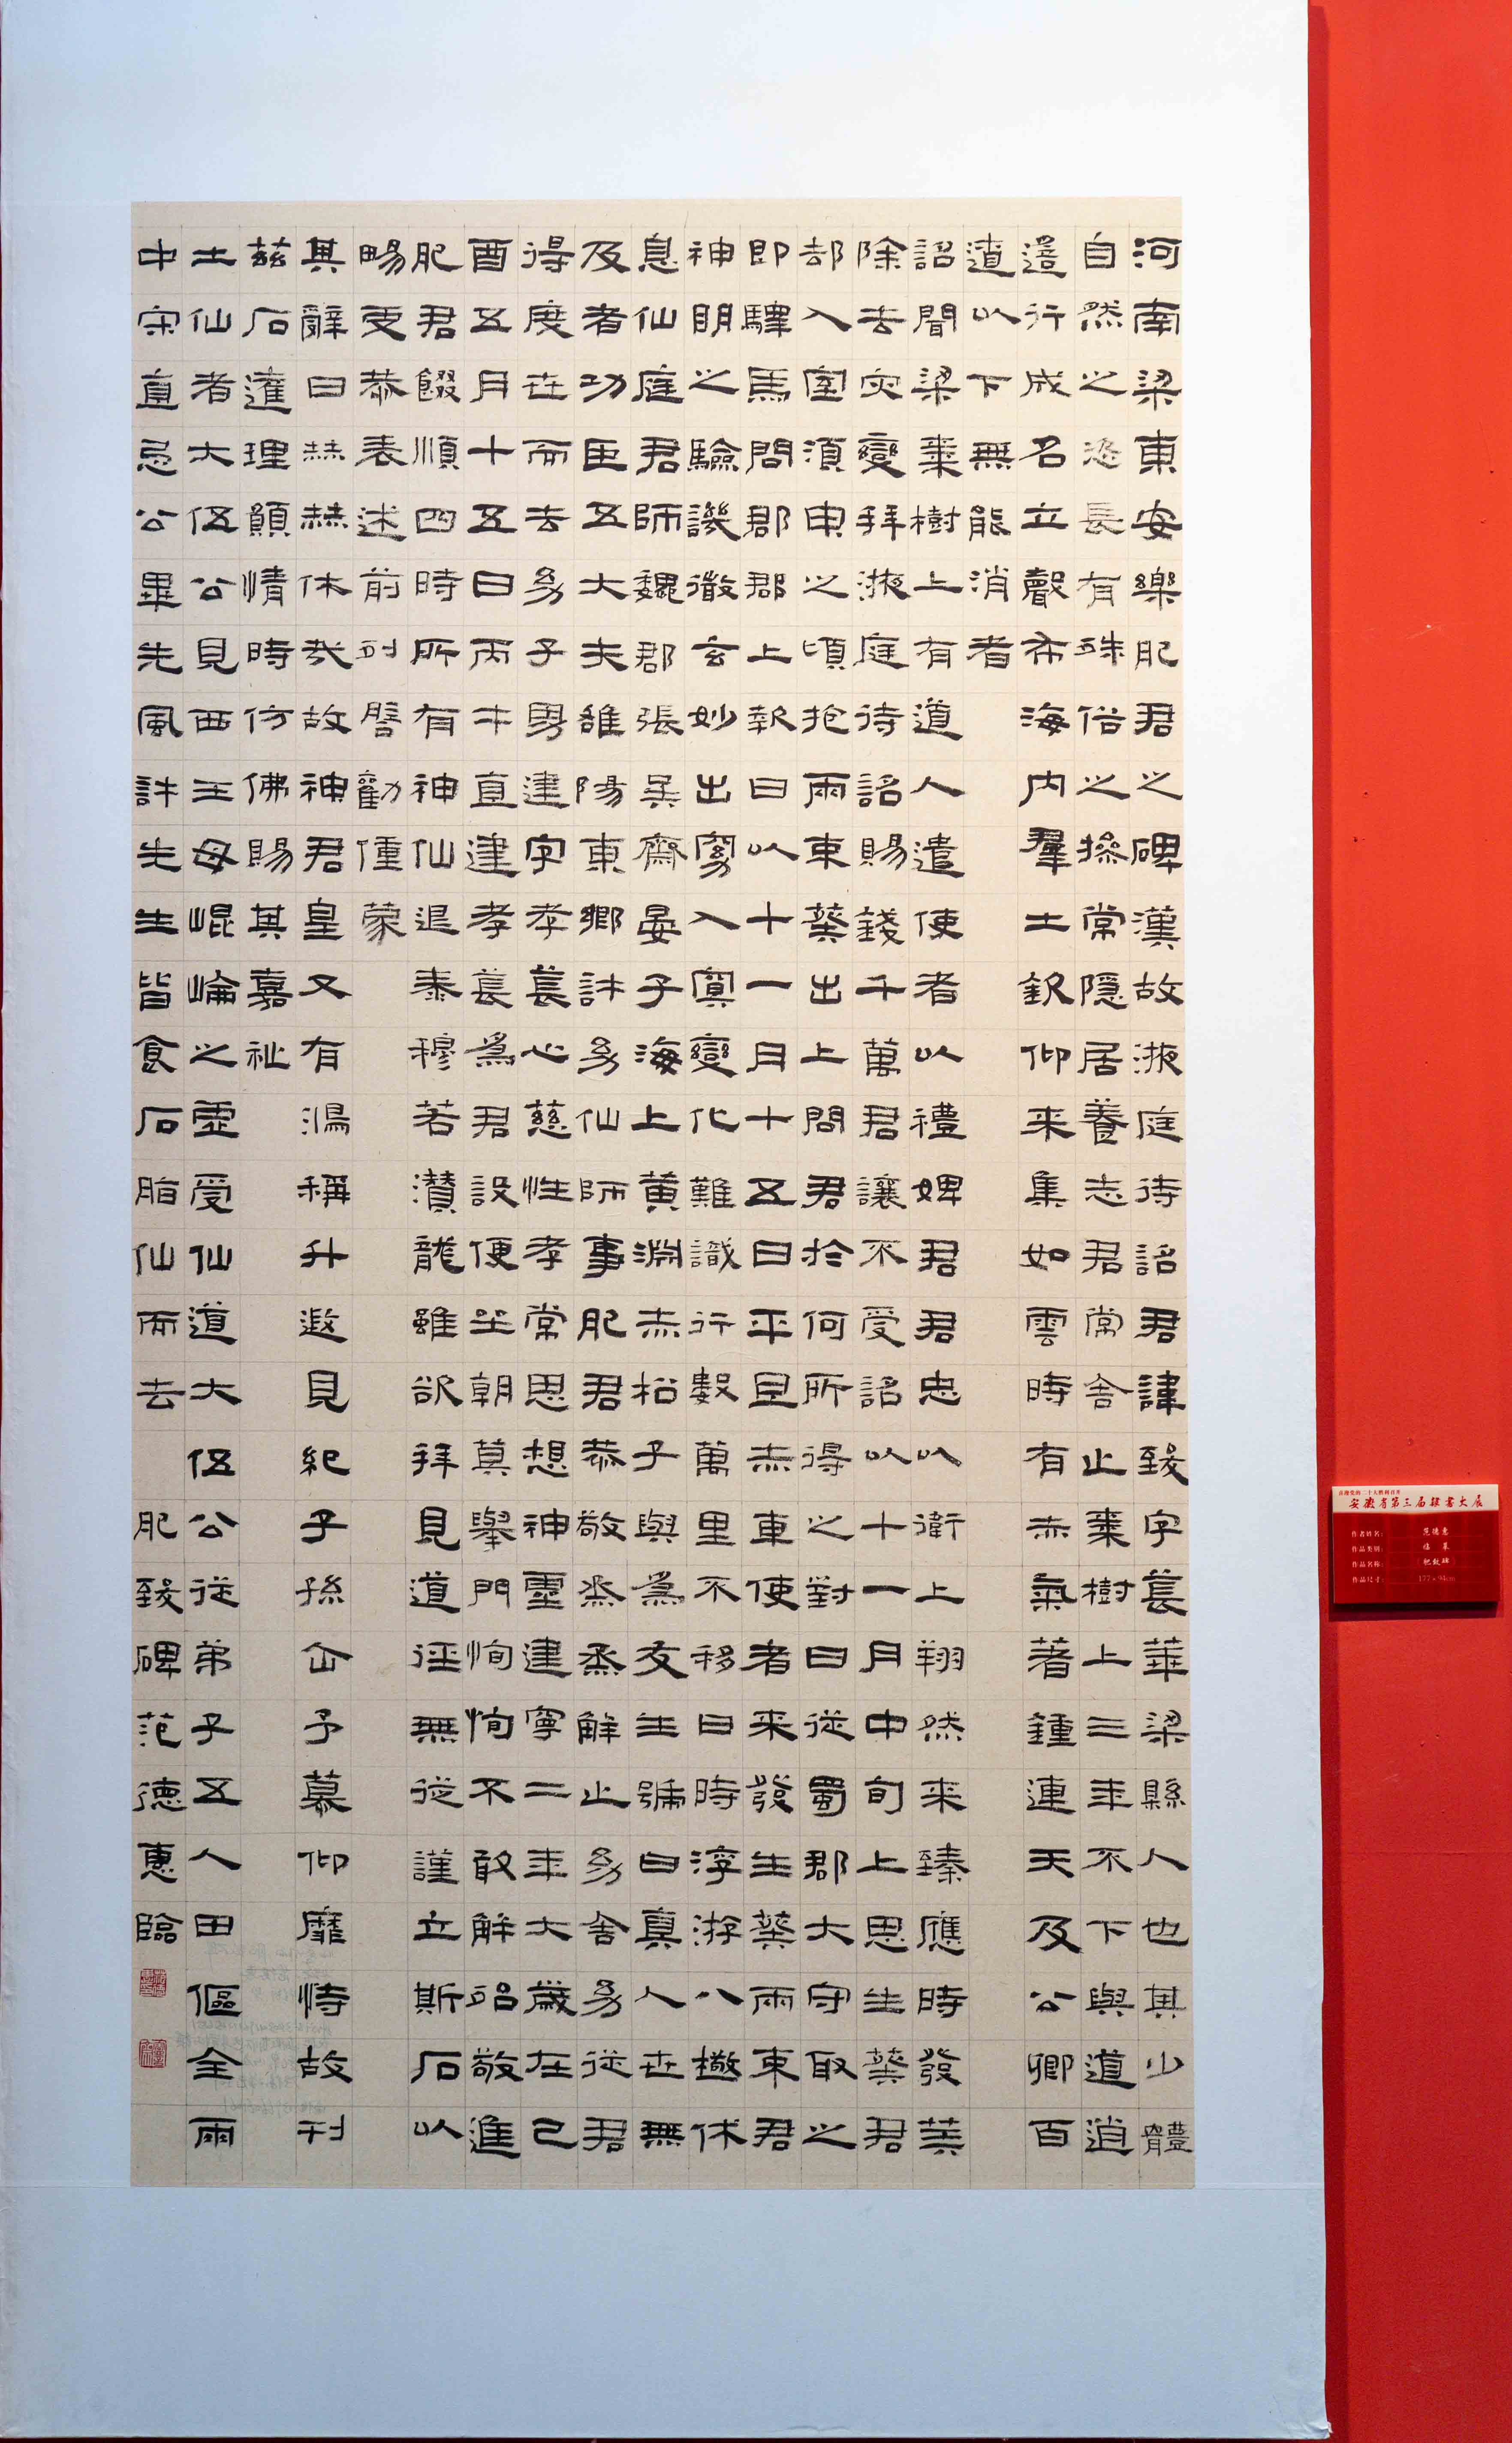 河南梁東安樂肥君之碑漢故掖庭待詔君諱致字萇華梁縣人也其少體
自然之恣長有殊俗之操常隱居養志君常舍止棗樹上三年不下與道逍
遙行成名立聲布海內羣士欽仰来集如雲時有赤氣著鍾連天及公卿百
遼以下無能消者
詔聞梁棗樹上有道人遣使者以禮娉君君忠以衛上翔然来臻應時發筭
除去灾變拜掖庭待詔賜錢千萬君讓不受詔以十一月中旬上思生葵君
却入室須臾之頃抱兩束葵出上問君於何所得之對曰從蜀郡大守取之
即驛馬問郡郡上報曰以十一月十五日平旦赤車使者来發生葵兩束君
神明之驗譏徹玄妙出窈入冥變化難識行數萬里不移日時浮游八極休
息仙庭君師魏郡張吳齋晏子海上黃淵赤松子與為友生號曰真人世無
及者功臣五大夫雒陽東鄉許幼仙師事肥君恭敬烝烝解止幼舍幼從君
得度世而去幼子男建字孝萇心慈性孝常思想神靈建寧二年大歲在己
酉五月十五日丙午直建孝萇為君設便坐朝莫舉門恂恂不敢解殆敬進
肥君餟順四時所有神仙退泰穆若潛龍雖欲拜見道徑無從謹立斯石以
暢虔恭表述前列啓勸僮蒙
其辭曰赫赫休哉故神君皇又有鴻稱升遐見紀子孫企予慕仰靡恃故刊
茲石達理願情時仿佛賜其嘉祉
土仙者大伍公見西王母崐崘之虛受仙道大伍公從弟子五人田傴全雨
中宋直忌公畢先風許先生皆食石脂仙而去 肥致碑范德惠臨
安徽省第三届隶书大展
作者姓名: 范德惠
作品类别: 临摹
作品名称: 《肥致碑》
作品尺寸: 177×94cm